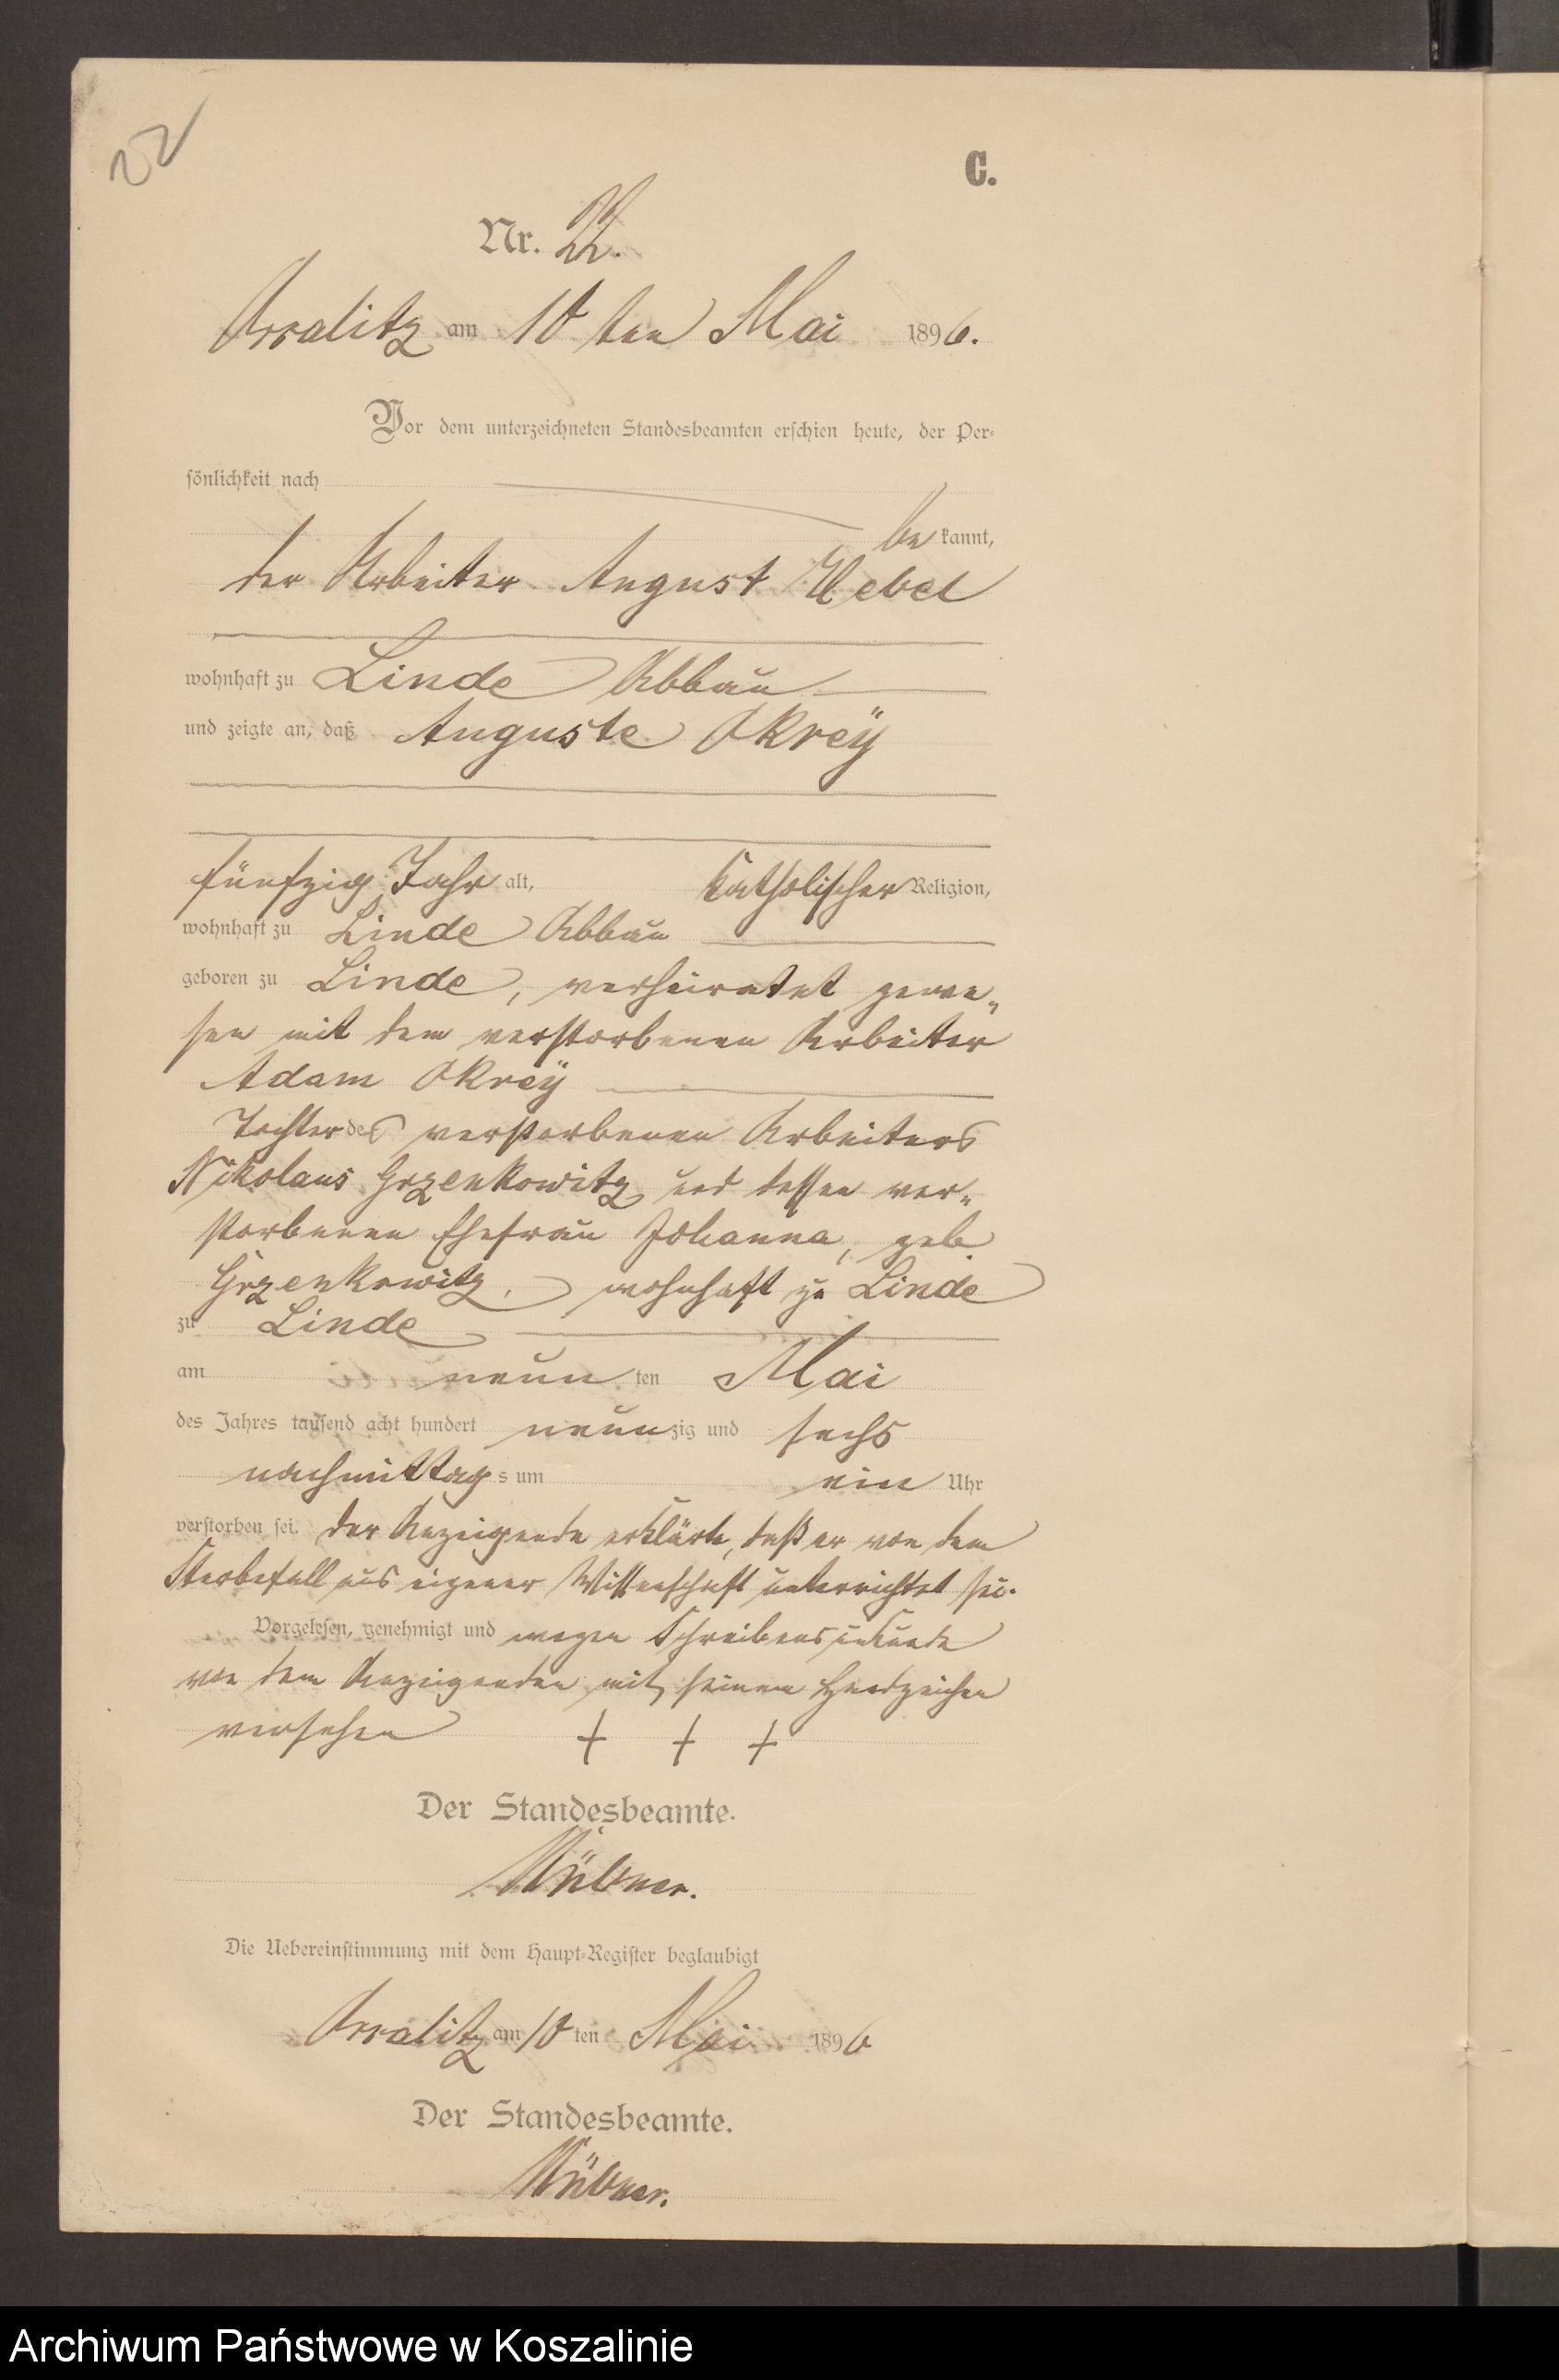 22
C.
Nr. 22.
Ossalitz am 10 ten Mai 1896.
Vor dem unterzeichneten Standesbeamten erschien heute, der Per-
sönlichkeit nach
be kannt,
der Arbeiter August Uebel
wohnhaft zu Linde Abbau
und zeigte an, daß Auguste Okrey
fünfzig Jahr alt, katholischer Religion,
wohnhaft zu Linde Abbau
geboren zu Linde, verheiratet gewe-
sen mit dem verstorbenen Arbeiter
Adam Okrey
Tochter des verstorbenen Arbeiters
Nikolaus Grzenkowitz und dessen ver-
storbenen Ehefrau Johanna, geb
Grzenkowitz, wohnhaft zu Linde
zu Linde
am neun ten Mai
des Jahres tausend acht hundert neunzig und sechs
nachmittags um ein Uhr
verstorben sei. Der Anzeigende erklärte, daß er von dem
Sterbefall aus eigener Wissenschaft unterrichtet sei.
Vorgelesen, genehmigt und wegen Schreibensunkunde
von dem Anzeigenden mit seinem Handzeichen
versehen + + +
Der Standesbeamte.
Die Uebereinstimmung mit dem Haupt-Register beglaubigt
Ossalitz am 10 ten Mai 1896
Der Standesbeamte.
Archiwum Państwowe w Koszalinie